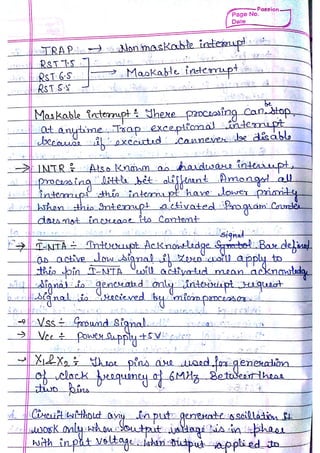 Passion
Page No.
Date
TRAP → Nonmaskable interrupt
RST 7.5
RST 6.5 → Maskable interrupt
RST 5.5
Maskable interrupt : There processing can be stop
at anytime. Trap exceptional interrupt
because if executed cannever be disable
→ INTR : Also known as hardware interrupt,
processing little bit different Amongst all
interrupt this interrupt have lower priority
when this Interrupt activated Program Counter
does not increase to Content
→ I-NTA ÷ Interrupt Acknowledge Symbol Signal Bar defined
as active low signal if zero will apply to
this pin I-NTA will activated mean acknowledge
signal is generated only interrupt request
signal is recieved by microprocessor.
→ Vss ÷ Ground Signal
→ Vcc ÷ power supply +5V
→ X1 & X2 : These pins are used for generation
of clock frequency of 6MHz. Between these
two pins
Circuit without any input generate oscillation it
work only when output voltage is in phase
with input voltage. When output applied to